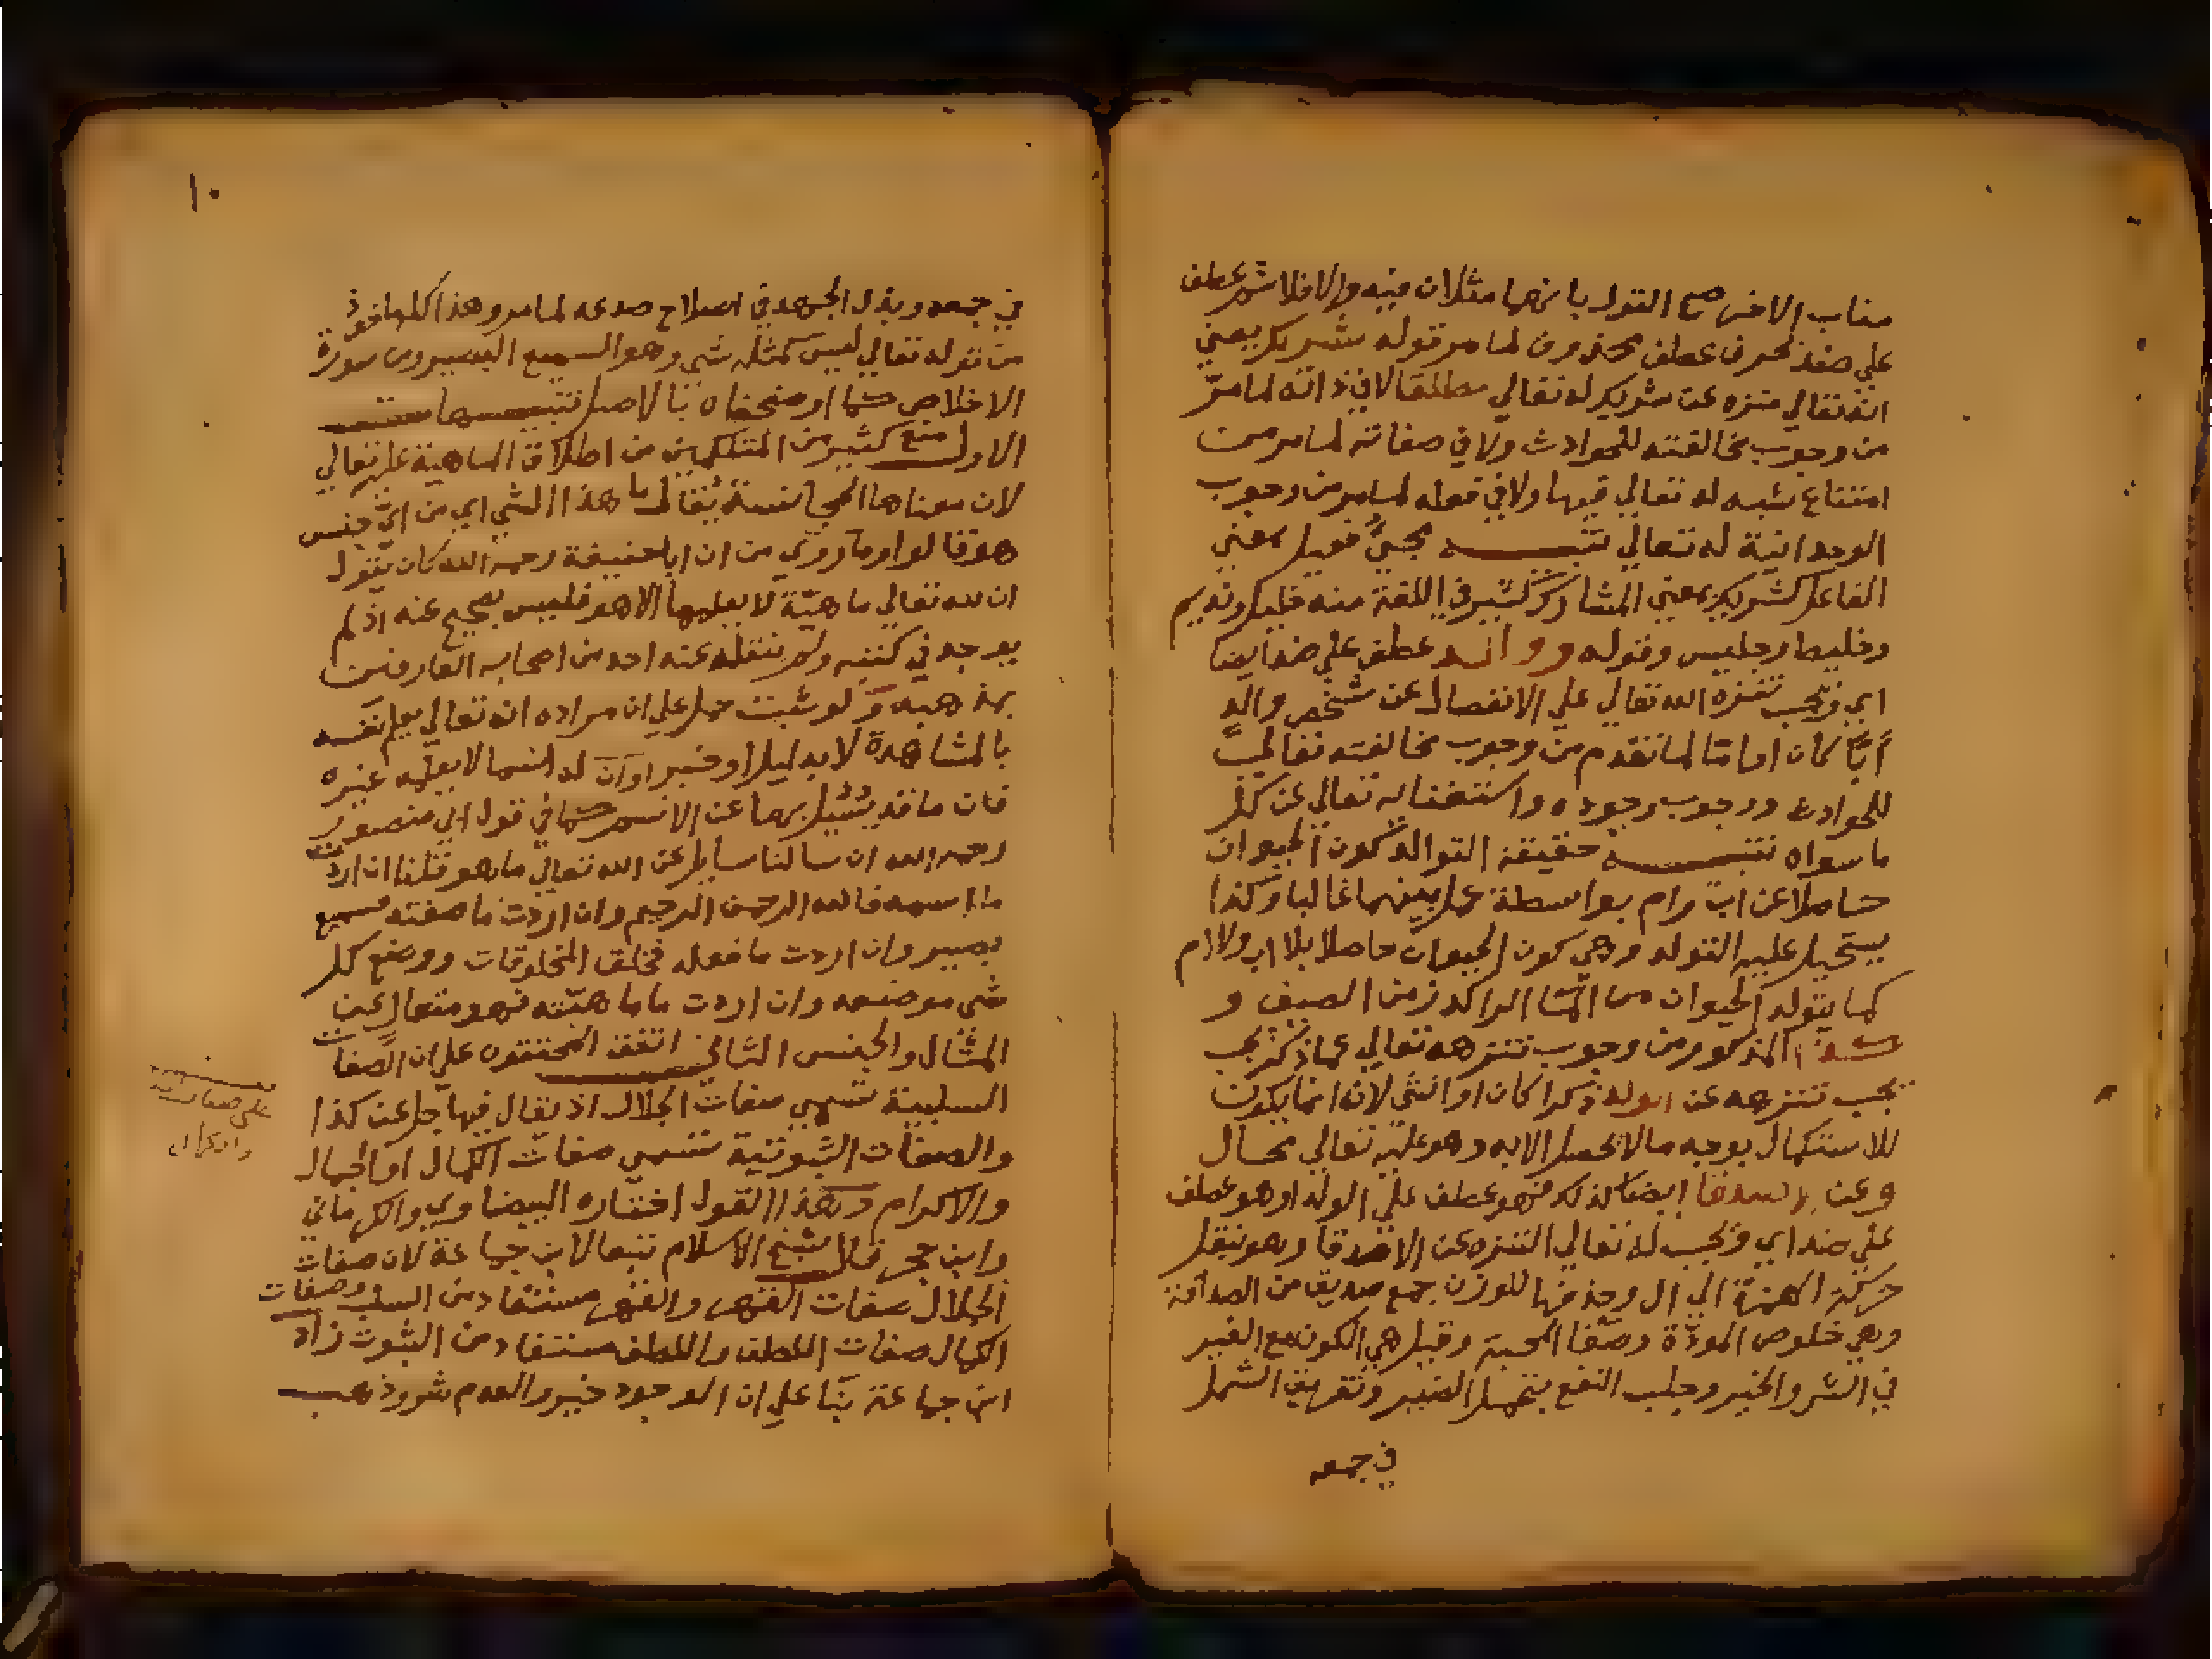 مناب الاخر صح القول بانهما مثلان فيه والا فلا ثم عطف
علي ضد بحرف عطف محذوف لما مر قوله شريك يعني
انه تعالي منزه عن شريك له تعالي مطلقا لا في ذاته لما مرّ
من وجوب مخالفته للحوادث ولا في صفاته لما مر من
امتناع شبه له تعالي فيها ولا في فعله لما مر من وجوب
الوحدانية له تعالي تنبيه يجيء فعيل بمعني
الفاعل كشريك بمعني المشارك كثير في اللغة منه خليل ونديم
وخليط وجليس وقوله ووالد عطف علي ضد ايضا
اي ويجب تنزه الله تعالي علي الانفصال عن شخص والدٍ
أبًا كان او امّا لما تقدم من وجوب مخالفته تعالي
للحوادث ووجوب وجوده واستغنايه تعالي عن كل
ما سواه تنبيه حقيقة التوالد كون الحيوان
حاصلا عن اب وام بواسطة عمل بينهما غالبا وكذا
يستحيل عليه التولد وهي كون الحيوان حاصلا بلا اب ولا ام
كما يتولد الحيوان من الما الراكد زمن الصيف و
كذا المذكور من وجوب تنزهه تعالي عما ذكر يجب
يجب تنزهه عن الولد ذكرا كان او انثي لانه انما يكون
للاستكمال بوجه ما لا يحصل الا به وهو عليه تعالي محال
وعن اصدقا ايضا كذلك فهو عطف علي الولد او هو عطف
علي ضد اي ويجب له تعالي التنزه عن الاصدقا وهو بنقل
حركة الهمزة الي ال وحذفها للوزن جمع صديق من الصداقة
وهي خلوص المودّة وصفا المحبة وقيل هي الكون مع الغير
في الشر والخير وجلب النفع بتحمل الضير وتفريق الشمل
في جمعه
١٠
في جمعه وبذل الجهد في اصلاح صدعه لما مر وهذا كله ماخوذ
من قوله تعالي ليس كمثله شي وهو السميع البصير ومن سورة
الاخلاص كما اوضحناه بالاصل تنبيهات
الاول منع كثير من المتكلمين من اطلاق الماهية عليه تعالي
لان معناها المجانسة يُقال ما هذا الشي اي من ايّ جنس
هو قالوا وما روي من ان ابا حنيفة رحمه الله كان يقول
ان لله تعالي ماهيّة لا يعلمها الا هو فليس بصحيح عنه اذ لم
يوجد في كتبه ولم ينقله عنه احد من اصحابه العارفين
بمذهبه ولو ثبت حمل علي ان مراده انه تعالي يعلم نفسه
بالمشاهدة لا بدليل او خبر او ان له اسما لا يعلمه غيره
فان ما قد يُسْئل بها عن الاسم كما في قول ابي منصور
رحمه الله ان سالنا سايل عن الله تعالي ما هو قلنا ان اردت
ما اسمه فالله الرحمن الرحيم وان اردت ما صفته فسميع
بصير وان اردت ما فعله فخلق المخلوقات ووضع كل
شي موضعه وان اردت ما ماهيّته فهو متعال عن
المثال والجنس الثاني اتفق المحققون علي ان الصفات
السلبية تسمي صفات الجلال اذ يقال فيها جل عن كذا
والصفات الثبوتية تسمي صفات الكمال او الجمال
والاكرام وبهذا القول اختاره البيضاوي والكرماني
وابن حجر قال شيخ الاسلام تبعا لابن جماعة لان صفات
الجلال صفات القهر والقهر مستفاد من السلب وصفات
الكمال صفات اللطف واللطف مستفاد من الثبوت زاد
ابن جماعة بنا علي ان الوجود خير والعدم شر وذهب
علي صفات
والكمال